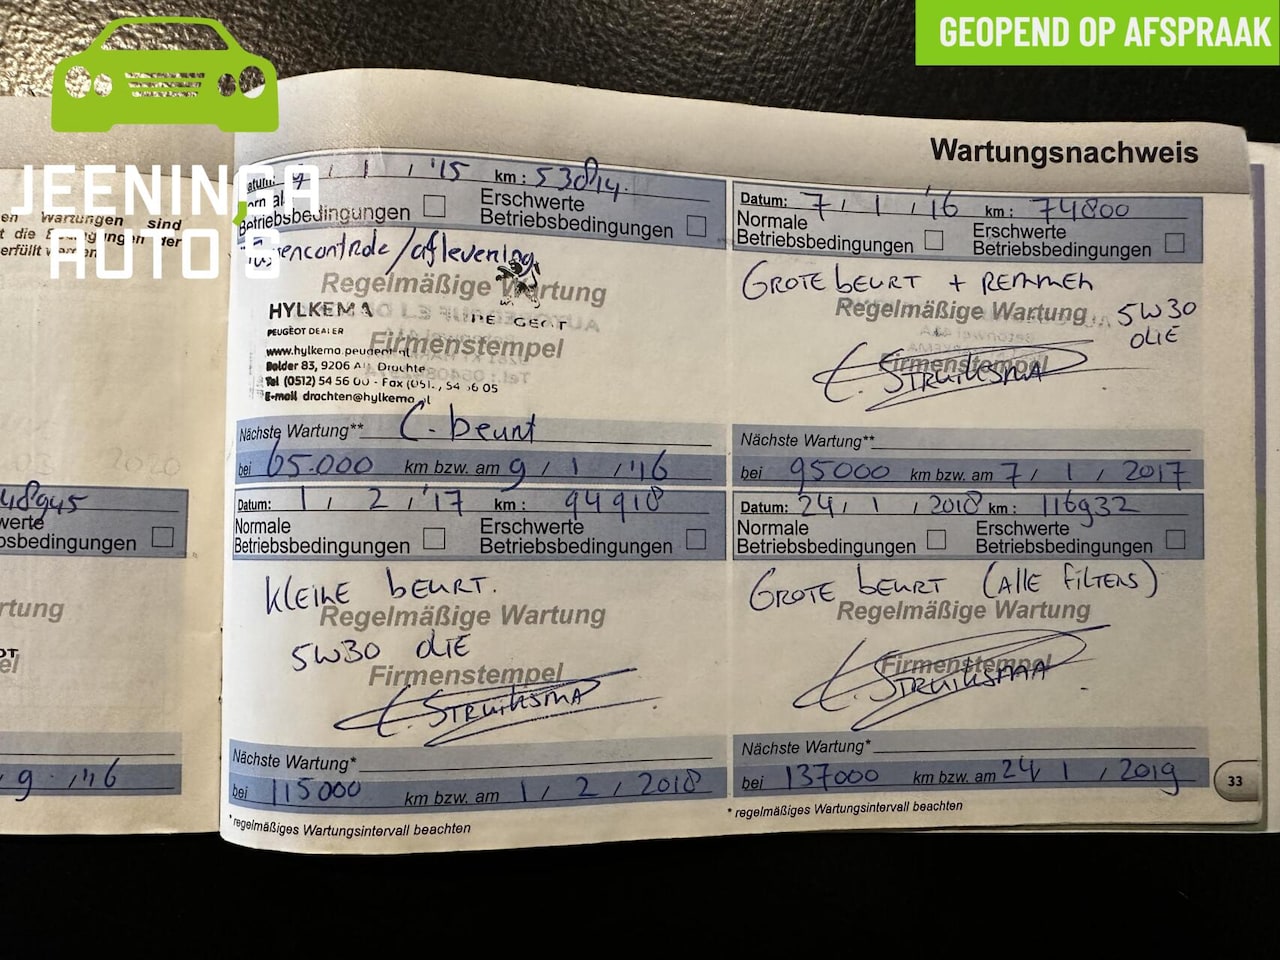 GEOPEND OP AFSPRAAK
JEENINGA
AUTO'S
Wartungsnachweis
en Wartungen sind
t die
der
erfüllt
2020
48945
werte
bsbedingungen
rtung
el
9 . '16
1 / '15 km : 53814.
Betriebsbedingungen
Erschwerte
Betriebsbedingungen
/aflevering
Regelmäßige Wartung
HYLKEMA
PEUGEOT DEALER
Firmenstempel
www.hylkema.peugeot.nl
Bolder 83, 9206 Drachte
Tel (0512) 54 56 00 - Fax
E-mail drachten@hylkema
Nächste Wartung** C-beurt
bei 65.000 km bzw. am 9 / 1 / '16
Datum: 7 / 1 / '16 km : 74800
Normale
Betriebsbedingungen
Erschwerte
Betriebsbedingungen
GROTE BEURT + REMMEN
Regelmäßige Wartung
5W30
OLIE
Firmenstempel
STRUIKSMA
Nächste Wartung**
bei 95000 km bzw. am 7 / 1 / 2017
Datum: 1 / 2 / '17 km : 94918
Normale
Betriebsbedingungen
Erschwerte
Betriebsbedingungen
KLEINE BEURT.
Regelmäßige Wartung
5W30 OLIE
Firmenstempel
STRUIKSMA
Nächste Wartung*
bei 115000 km bzw. am 1 / 2 / 2018
* regelmäßiges Wartungsintervall beachten
Datum: 24 / 1 / 2018 km : 116932
Normale
Betriebsbedingungen
Erschwerte
Betriebsbedingungen
GROTE BEURT (ALLE FILTERS)
Regelmäßige Wartung
Firmenstempel
STRUIKSMA
Nächste Wartung*
bei 137000 km bzw. am 24 / 1 / 2019
* regelmäßiges Wartungsintervall beachten
33